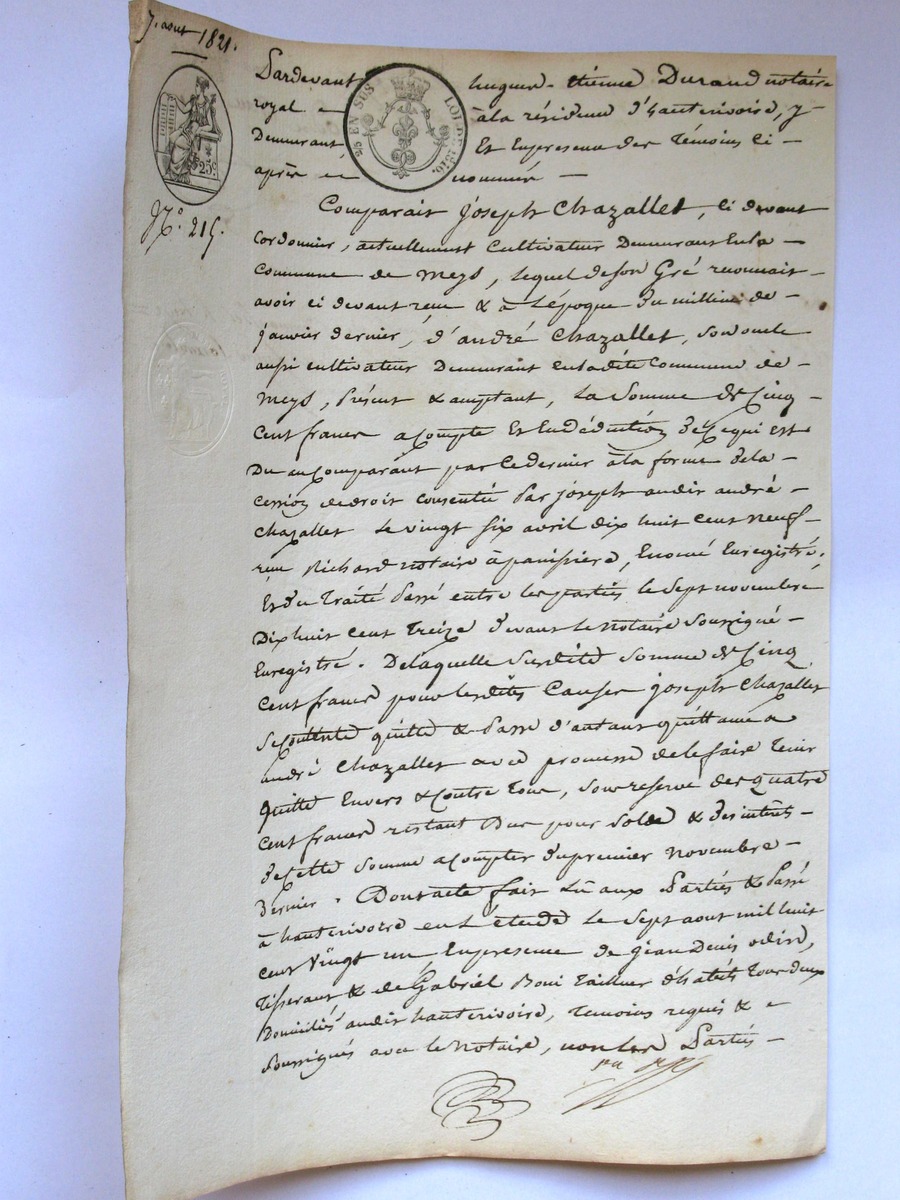 7. aout 1821.
25c
2/5 EN SUS
LOI DE 1816.
N.o 215.
Pardevant hugues - étienne Durand notaire
royal - à la résidence d'hauterivoire, y
Demeurant Et En presence des Témoins ci
après - nommés -
Comparait joseph Chazallet, ci devant
cordonnier, actuellement cultivateur Demeurant En la -
Commune de Meys, lequel de son Gré reconnait -
avoir ci devant reçu & à l'époque du milieu de -
janvier dernier, d'andré Chazallet, son oncle
aussi cultivateur Demeurant en la dite Commune de -
Meys, présent & acceptant, La Somme de Cinq -
Cent francs a Compte Et En déduction de Ce qui est
Du au Comparant par Ce dernier à la forme de la -
cession de droit consentie par joseph audit andré -
Chazallet le vingt six avril dix huit cent neuf -
reçu Richard notaire à panissiere, Enregistré.
Et du Traité passé entre les parties le Sept novembre
Dix huit cent Treize devant le Notaire Soussigné -
Enregistré. De laquelle susdite somme de Cinq
Cent francs pour les dites Causes joseph Chazallet
Se Contente quitte & passe d'autant quittance a
andré Chazallet avec promesse de le faire Tenir
quitte Envers & Contre tous, sous reserve des quatre
Cent francs restant Dus pour solde & des intérêts -
de Cette somme a Compter du premier Novembre -
Dernier. Dont acte fait Lu aux Parties & passé
à hauterivoire en L'étude le Sept aout mil huit
cent vingt un En presence de jean Denis
Tisserant & de Gabriel tailleur d'habits Tous deux
Domiciliés audit hauterivoire, Temoins requis & -
Soussignés avec le Notaire, non les Parties -